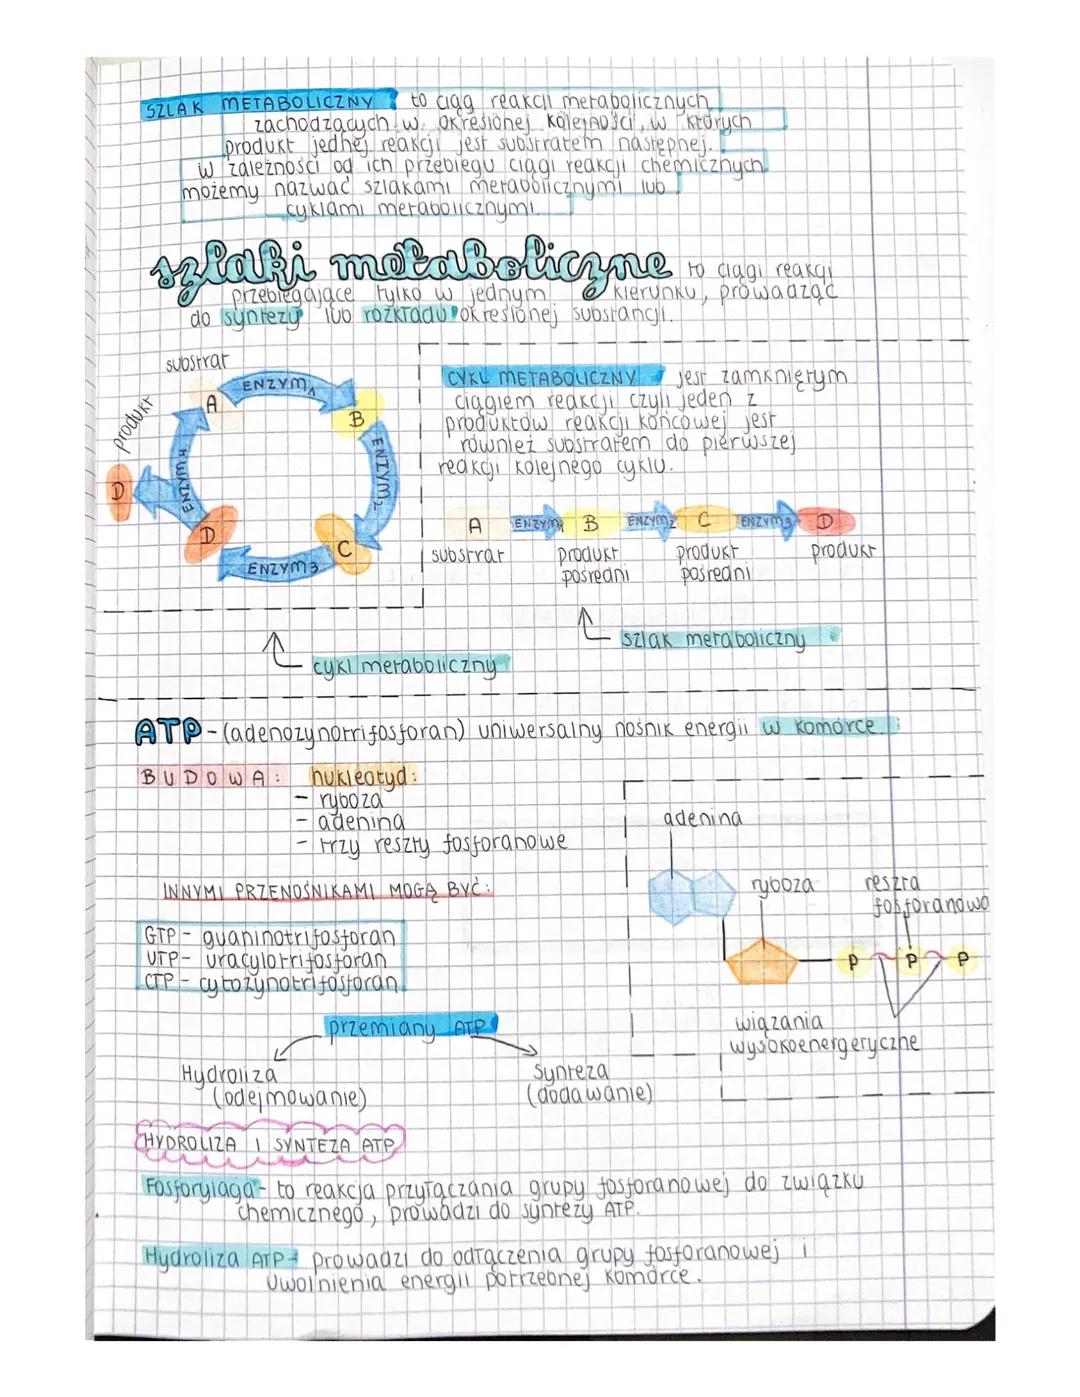 SZLAK METABOLICZNY to ciąg reakcji metabolicznych
zachodzących w określonej kolejności, w których
produkt jednej reakcji jest substratem następnej.
w zależności od ich przebiegu ciągi reakcji chemicznych
możemy nazwać szlakami metabolicznymi lub
cyklami metabolicznymi.
szlaki metaboliczne to ciągi reakcji
przebiegające tylko w jednym kierunku, prowadząc
do syntezy lub rozkładu określonej substancji.
substrat
produkt
A
ENZYM1
B
ENZYM2
C
ENZYM3
D
ENZYM4
D
CYKL METABOLICZNY jest zamkniętym
ciągiem reakcji czyli jeden z
produktów reakcji końcowej jest
również substratem do pierwszej
reakcji kolejnego cyklu.
A ENZYM1 B ENZYM2 C ENZYM3 D
substrat produkt produkt produkt
pośredni pośredni
szlak metaboliczny
cykl metaboliczny
ATP - (adenozynotrifosforan) uniwersalny nośnik energii w komórce.
BUDOWA: nukleotyd:
- ryboza
- adenina
- trzy reszty fosforanowe
INNYMI PRZENOŚNIKAMI MOGĄ BYĆ:
GTP - guaninotrifosforan
UTP - uracylotrifosforan
CTP - cytozynotrifosforan
adenina
ryboza
reszta
fosforanowa
P P P
wiązania
wysokoenergetyczne
przemiany ATP
Hydroliza
(odejmowanie)
Synteza
(dodawanie)
HYDROLIZA I SYNTEZA ATP
Fosforylacja - to reakcja przyłączania grupy fosforanowej do związku
chemicznego, prowadzi do syntezy ATP.
Hydroliza ATP - prowadzi do odłączenia grupy fosforanowej i
uwolnienia energii potrzebnej komórce.